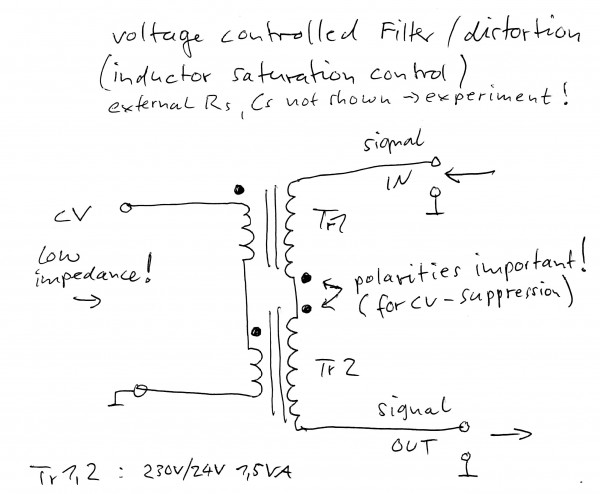 voltage controlled Filter / distortion
(inductor saturation control)
external Rs, Cs not shown → experiment!
signal
IN
CV
Tr1
low
impedance!
→
polarities important!
(for CV-suppression)
Tr 2
signal
OUT
Tr 1,2 : 230V/24V 1,5VA